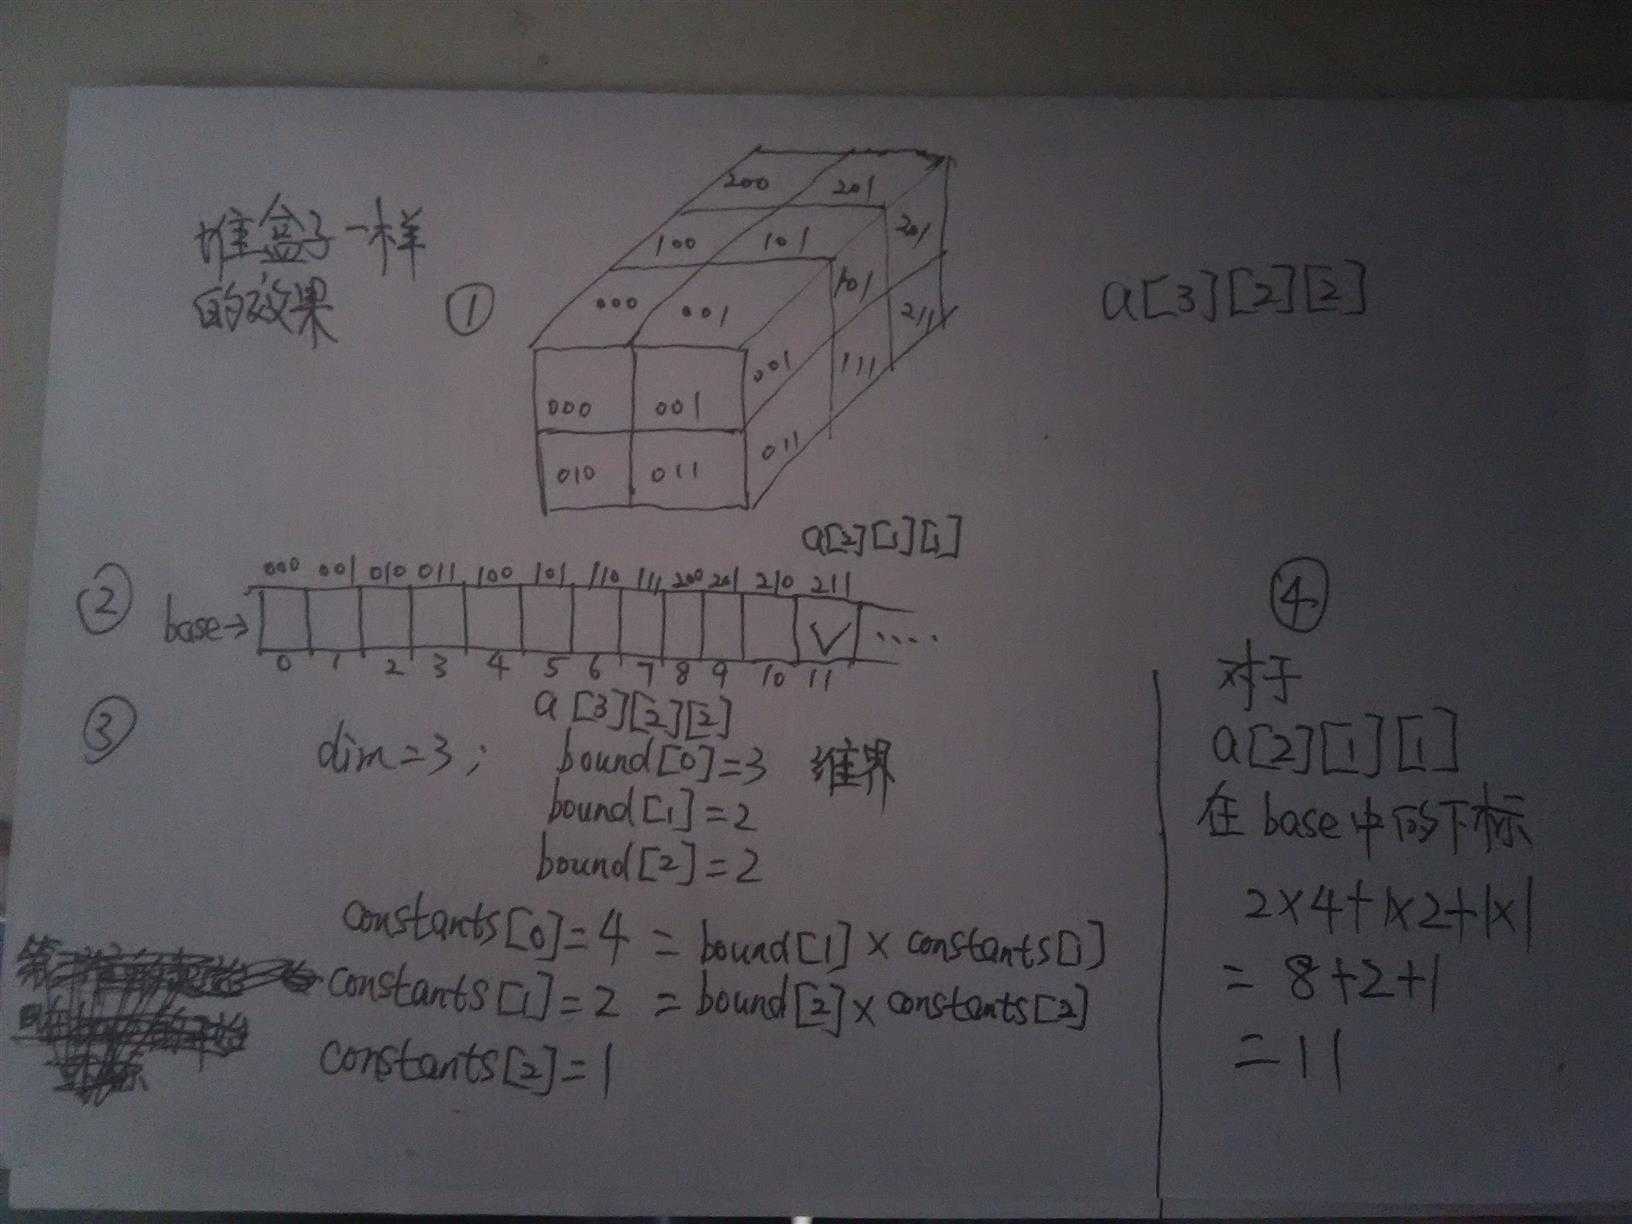 堆盒子一样
的效果
①
200 201
100 101
000 001
201
101
211
001
111
011
000 001
010 011
a[3][2][2]
a[2][1][1]
②
000 001 010 011 100 101 110 111 200 201 210 211
base→
√ ....
0 1 2 3 4 5 6 7 8 9 10 11
③
a[3][2][2]
dim=3; bound[0]=3 维界
bound[1]=2
bound[2]=2
constants[0]=4 = bound[1]×constants[1]
constants[1]=2 = bound[2]×constants[2]
constants[2]=1
④
对于
a[2][1][1]
在base中的下标
2×4+1×2+1×1
=8+2+1
=11